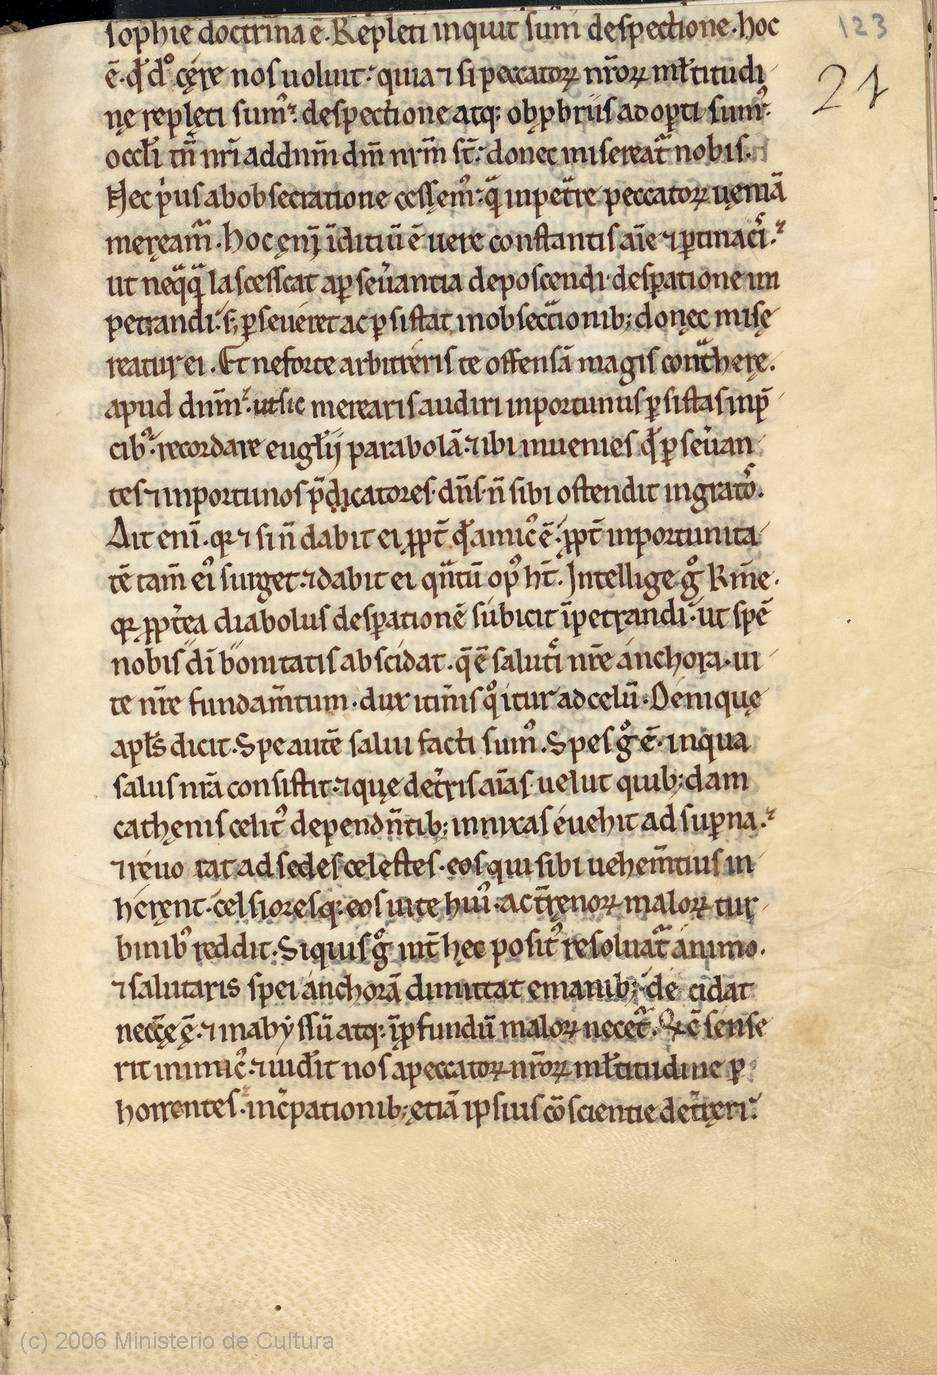 123
21
sophie doctrina ē. Repleti inquit sum̄ despectione. hoc
ē. q̄d d̓o cęre nos uoluit: quia ⁊ si peccatoꝝ nr̄oꝝ ml̄titudi
ne repleti sumꝰ. despectione atq; obprbriis adopti sumꝰ.
occl̄i tn̄ nr̄i ad dnm̄ dm̄ nrm̄ st̄: donec misereat̄ nobis.
Hec prius ab obsecratione cessemꝰ: q̄ inpetr̄e peccatoꝝ uęniā
mereamꝰ. Hoc ęnī īditiū ē uere constantis aīe ⁊ ꝑtinaci.
ut neq̄q̄ lascesscat a ꝑseuerantia deposcendi desꝑatione im
petrandi: s; ꝑseueret ac ꝑsistat in obsecc̄ionib; donęc misę
reatur ei. Et ne forte arbitreris te offensā magis cont̄here.
apud dnm̄: ut sic merearis audiri inportunus ꝑsistas in p̄
cibꝰ: recordare eugl̄ij parabolā. ⁊ ibi inuenies q̄d ꝑseueran
tes ⁊ inportunos p̄dicatores dn̄s n̄ sibi ostendit ingratos.
Ait enī. qꝛ ⁊ si n̄ dabit ei ꝓpt̄ q̄d amicꝰ ē: ꝓpt̄ inportunita
tē tam̄ eiꝰ surget. ⁊ dabit ei qn̄tū opꝰ ht̄. Intellige g̊ kr̄me.
qꝛ ꝓpt̄ea diabolus desꝑationē subicit īpetrandi. ut spē
nobis dī bonitatis abscidat. q̄ ē salutis nr̄e anchora. ui
te nr̄e fundam̄tum. dux itin̄is q̊ itur ad celū. Deniquę
apl̄s dicit. Spe autē salui facti sumꝰ. Spes g̊ ē. in qua
salus nr̄a consistit. ⁊ que detr̄ris aīas uelut quib;dam
cathenis celitꝰ dependn̄tib; innixas euehit ad supna.
⁊ reuo cat ad sedes celestes. eos qui sibi uehem̄tius in
herent. celsioresq; eos uite huiꝰ. ac tr̄renoꝝ maloꝝ tur
binibꝰ reddit. Si quis g̊ int̄ hec positꝰ resoluat̄ animo.
⁊ salutaris spei anchorā dimittat e manib; de cidat
necc̄ę ē. ⁊ in abyssū atq; ī ꝓfundū maloꝝ necet̄. Qd̄ cū sense
rit inimicꝰ. ⁊ uidit nos a peccatoꝝ nr̄oꝝ ml̄titudine ꝑ
horrentes. inc̄pationib; etiā ipsius cōscientie detr̄eri.
(c) 2006 Ministerio de Cultura